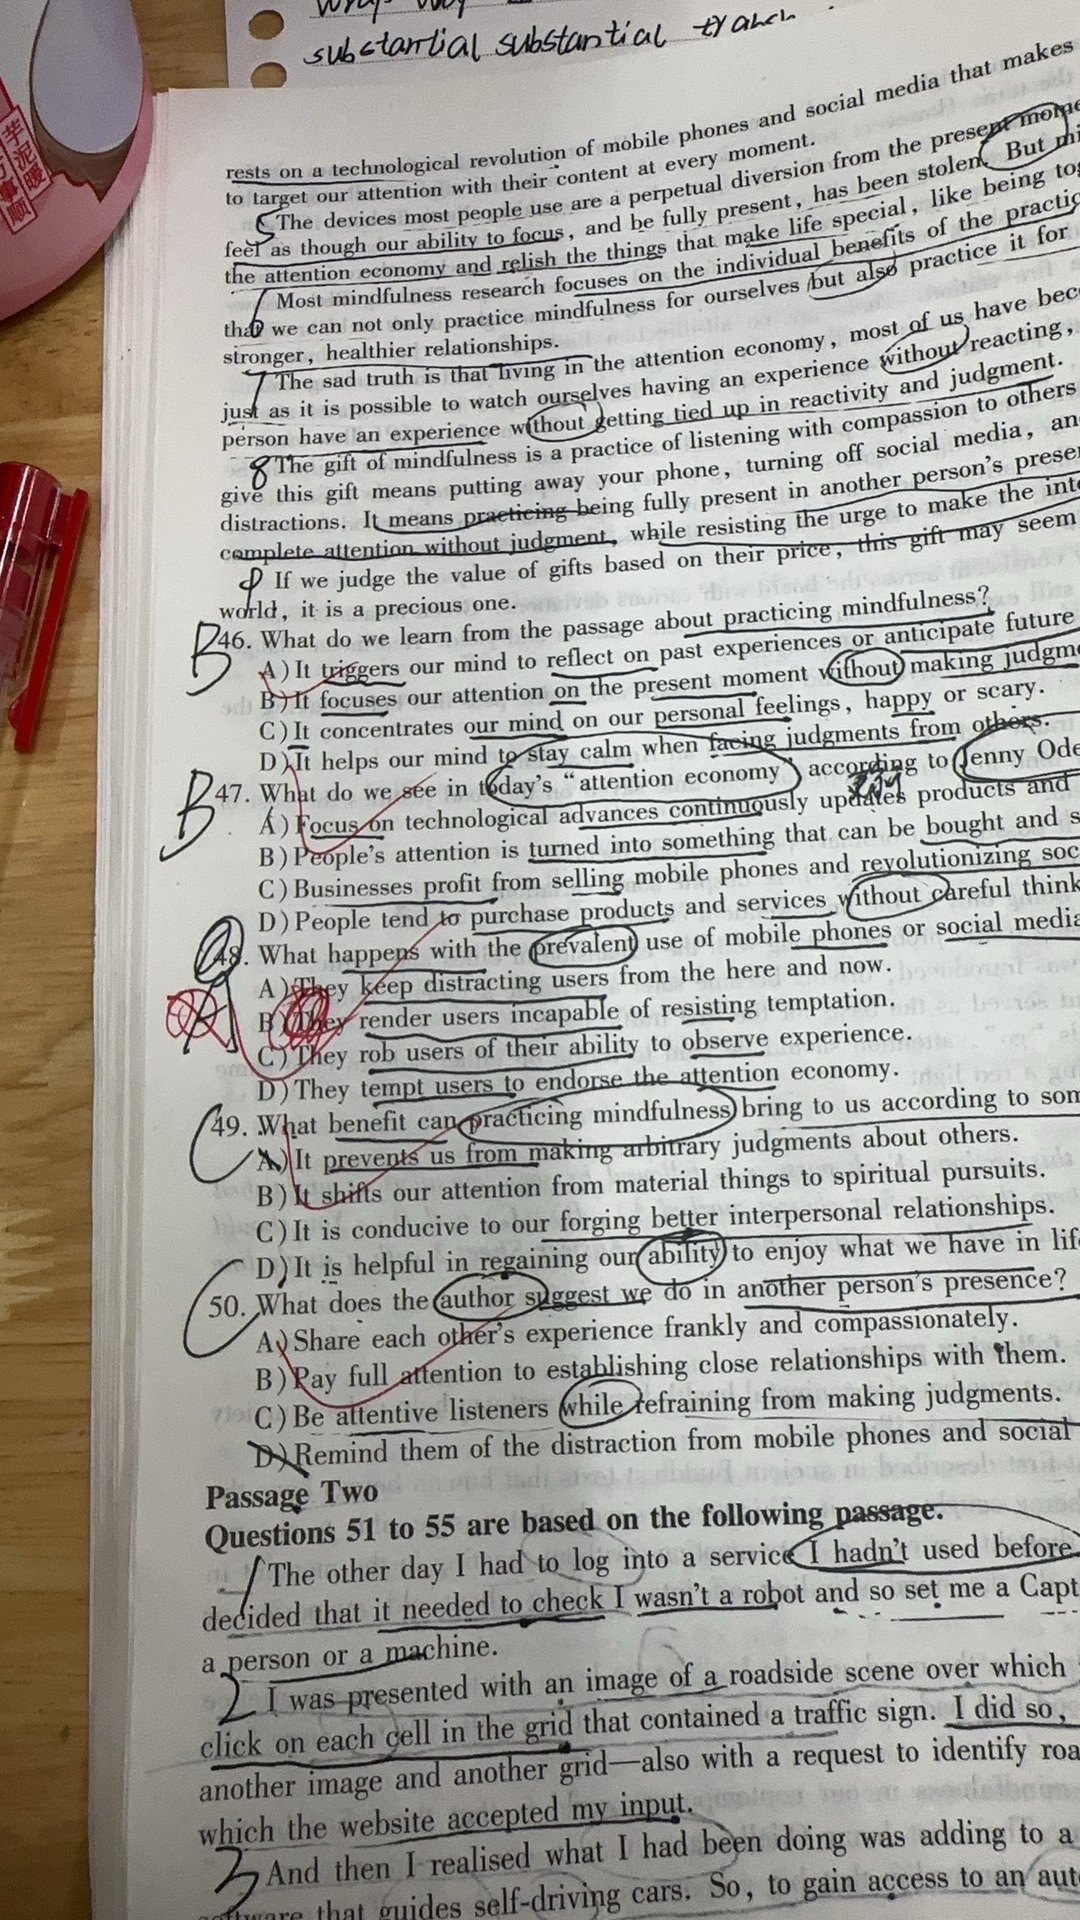 substantial substantial
芋泥暖
事顺
rests on a technological revolution of mobile phones and social media that makes
to target our attention with their content at every moment.
5 The devices most people use are a perpetual diversion from the present
feel as though our ability to focus, and be fully present, has been stolen. But
the attention economy and relish the things that make life special, like being
6 Most mindfulness research focuses on the individual benefits of the
that we can not only practice mindfulness for ourselves but also practice it for
stronger, healthier relationships.
7 The sad truth is that living in the attention economy, most of us have
just as it is possible to watch ourselves having an experience without reacting,
person have an experience without getting tied up in reactivity and judgment.
8 The gift of mindfulness is a practice of listening with compassion to others
give this gift means putting away your phone, turning off social media,
distractions. It means practicing being fully present in another person's
complete attention without judgment, while resisting the urge to make the
9 If we judge the value of gifts based on their price, this gift may seem
world, it is a precious one.
B 46. What do we learn from the passage about practicing mindfulness?
A) It triggers our mind to reflect on past experiences or anticipate future
B) It focuses our attention on the present moment without making
C) It concentrates our mind on our personal feelings, happy or scary.
D) It helps our mind to stay calm when facing judgments from others.
B 47. What do we see in today's “attention economy” according to Jenny
A) Focus on technological advances continuously updates products and
B) People's attention is turned into something that can be bought and
C) Businesses profit from selling mobile phones and revolutionizing
D) People tend to purchase products and services without careful
48. What happens with the prevalent use of mobile phones or social media
A A) They keep distracting users from the here and now.
B) They render users incapable of resisting temptation.
C) They rob users of their ability to observe experience.
D) They tempt users to endorse the attention economy.
C 49. What benefit can practicing mindfulness bring to us according to
A) It prevents us from making arbitrary judgments about others.
B) It shifts our attention from material things to spiritual pursuits.
C) It is conducive to our forging better interpersonal relationships.
D) It is helpful in regaining our ability to enjoy what we have in
C 50. What does the author suggest we do in another person's presence?
A) Share each other's experience frankly and compassionately.
B) Pay full attention to establishing close relationships with them.
C) Be attentive listeners while refraining from making judgments.
D) Remind them of the distraction from mobile phones and social
Passage Two
Questions 51 to 55 are based on the following passage.
1 The other day I had to log into a service I hadn't used before
decided that it needed to check I wasn't a robot and so set me a
a person or a machine.
2 I was presented with an image of a roadside scene over which
click on each cell in the grid that contained a traffic sign. I did so,
another image and another grid—also with a request to identify
which the website accepted my input.
3 And then I realised what I had been doing was adding to a
software that guides self-driving cars. So, to gain access to an